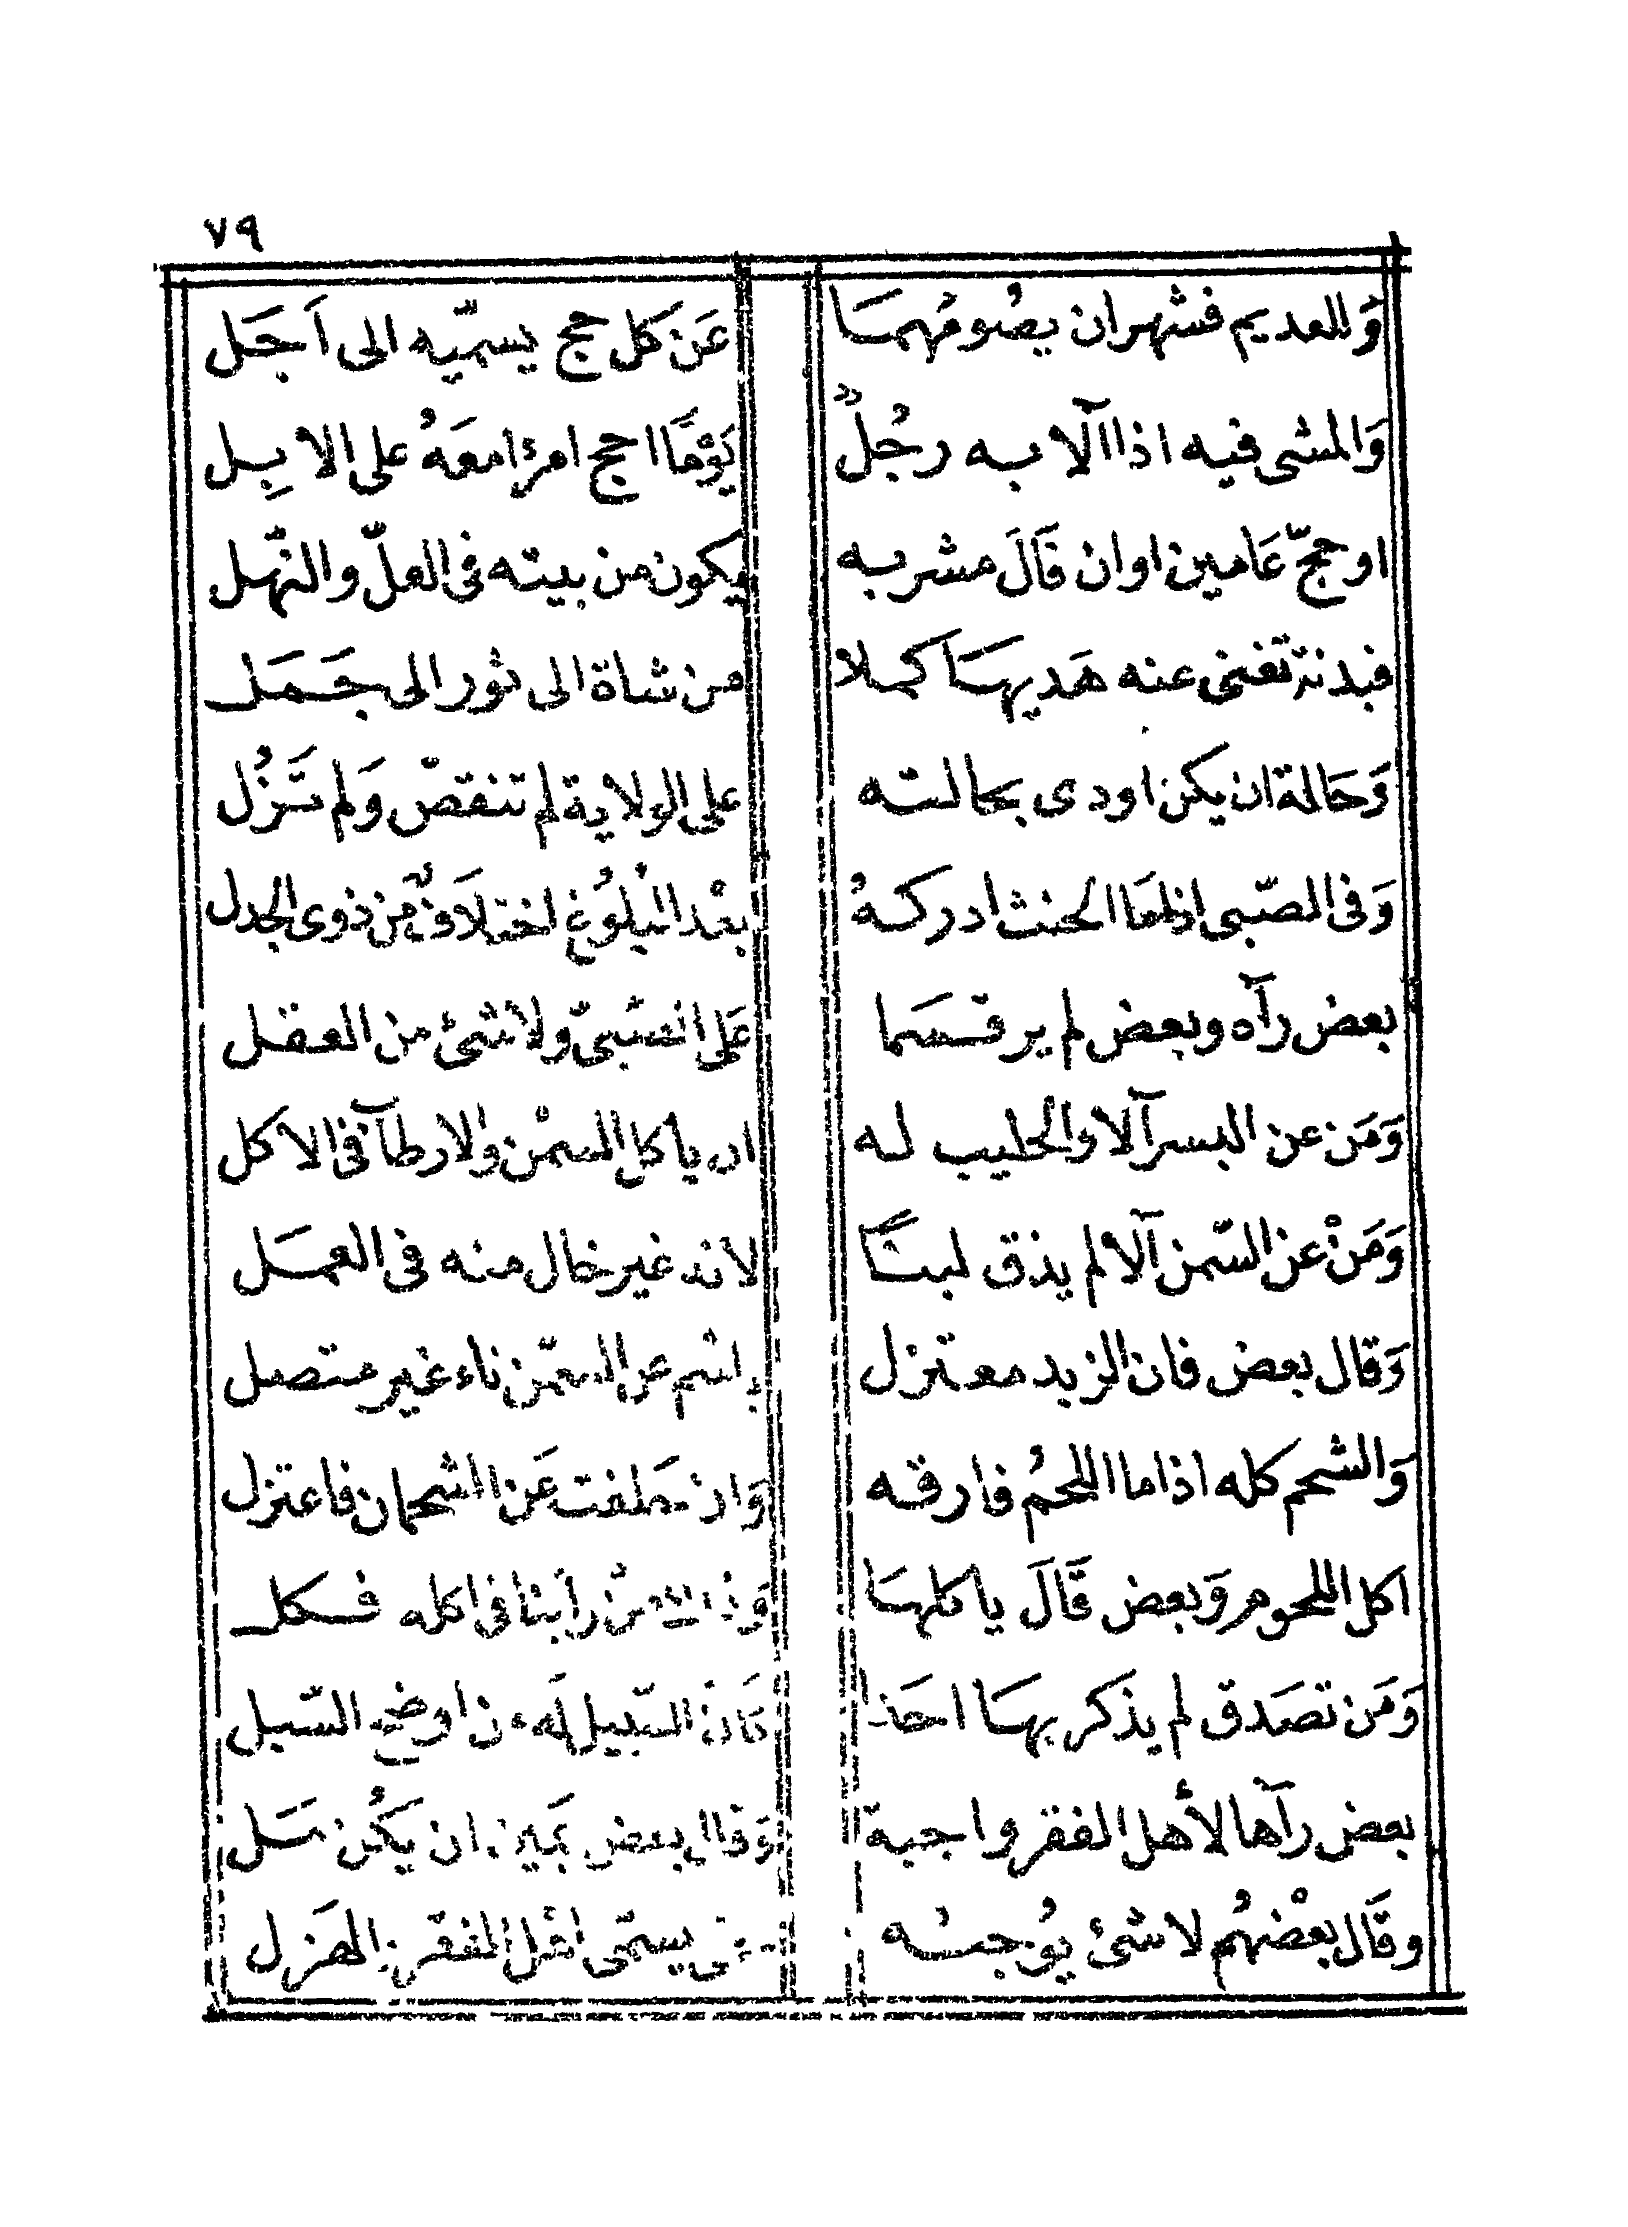 ٧٩
وَالعديم فشهران يصُومُهمَا عَن كل حج يسمّيه الى اَجَل
وَالمشى فيه اذا اٰلا به رجُلٌ يَوْمًا احج امرئ امعَهُ على الابِل
او حجّ عَامين اوان قَالَ مشربه يكون من بيته فى العلّ والنّهل
فبدنة تغنى عنه هَديهَا كملا من شاة الى ثور الى جَمَل
وَحَالة ان يكن اودى بحالته على الولاية لم تنقصّ وَلم تَزُل
وَفى الصّبى اذا مَا الحنث ادركهُ بعْد البُلوُغ اختلَافٌ من ذوى الجدل
بعض رآه وبعض لم ير قسَما عَلى الصّبىّ ولا شئ من العقل
وَمَن عن البسر آلا والحليب له ان ياكل السمْن والارطآ فى الاكل
وَمَنْ عن السّمن آلا لم يذق لبنًا لانه غير خال منه فى العمَل
وَقال بعض فان الزبد معتزل باسم عن السّمن ناء غير متصل
وَالشحم كله اذا ما اللحُم فارقه وَان حلفت عَن الشحمان فاعتزل
اكل اللحوم وَبعض قَالَ ياكلهَا من رأينا فى اكله فكل
وَمَن تصَدق لم يذكر بهَا احَدا فَان السّبيل لَه من اوضح السّبل
بعض رآها لأهل الفقر واجبة وَقال بعض يمين ان يكُن سَل
وقَال بعْضهُم لا شئ يوُجبُه يسمّى اهْل الفقر الهَزل